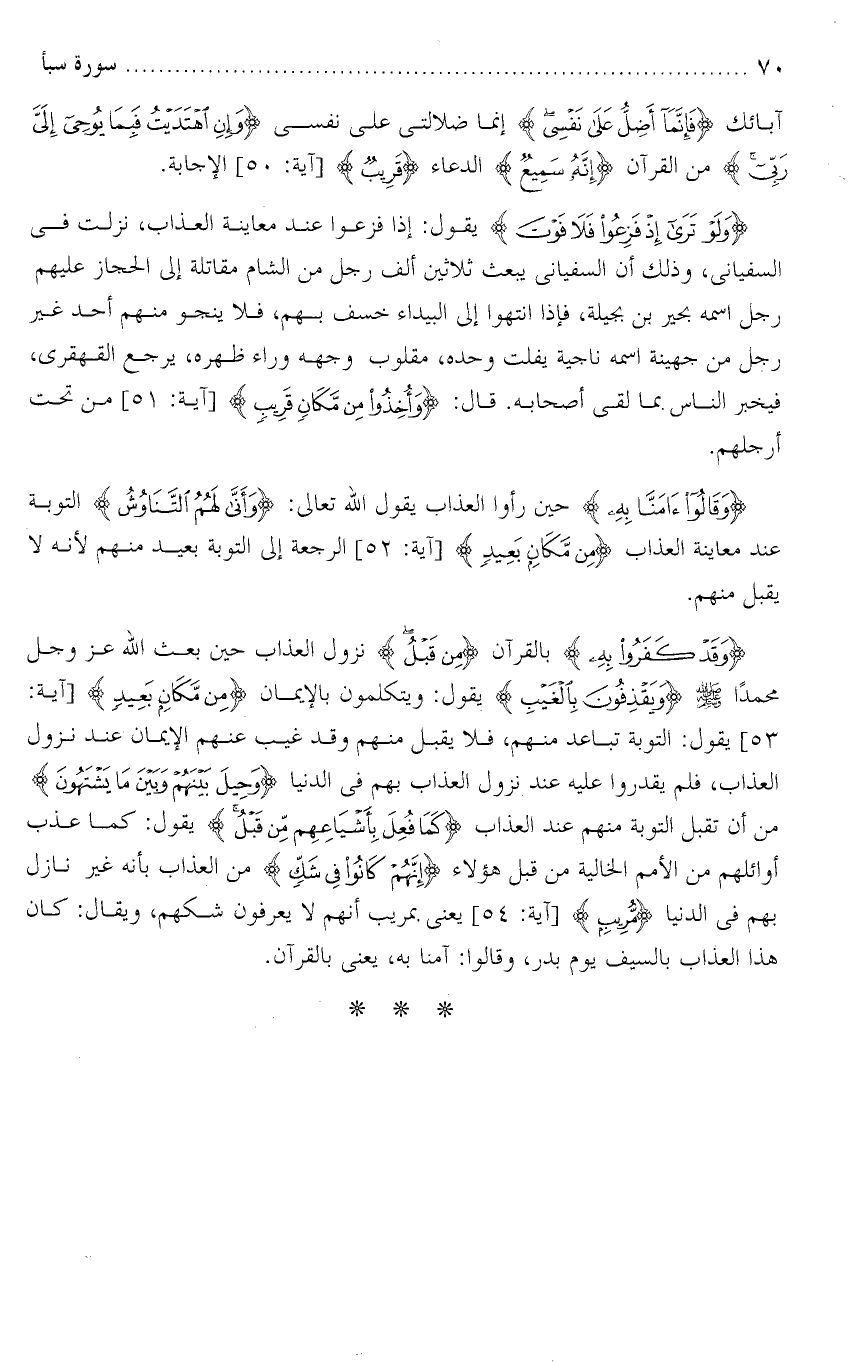 ٧٠ ........................................................................... سورة سبأ
آبائك ﴿فَإِنَّمَآ أَضِلُّ عَلَىٰ نَفْسِىۖ﴾ إنما ضلالتى على نفسى ﴿وَإِنِ ٱهْتَدَيْتُ فَبِمَا يُوحِىٓ إِلَىَّ
رَبِّىٓۚ﴾ من القرآن ﴿إِنَّهُۥ سَمِيعٌ﴾ الدعاء ﴿قَرِيبٌ﴾ [آية: ٥٠] الإجابة.
﴿وَلَوْ تَرَىٰٓ إِذْ فَزِعُوا۟ فَلَا فَوْتَ﴾ يقول: إذا فزعوا عند معاينة العذاب، نزلت فى
السفيانى، وذلك أن السفيانى يبعث ثلاثين ألف رجل من الشام مقاتلة إلى الحجاز عليهم
رجل اسمه بحير بن بجيلة، فإذا انتهوا إلى البيداء خسف بهم، فلا ينجو منهم أحد غير
رجل من جهينة اسمه ناجية يفلت وحده، مقلوب وجهه وراء ظهره، يرجع القهقرى،
فيخبر الناس بما لقى أصحابه. قال: ﴿وَأُخِذُوا۟ مِن مَّكَانٍ قَرِيبٍ﴾ [آية: ٥١] من تحت
أرجلهم.
﴿وَقَالُوٓا۟ ءَامَنَّا بِهِۦ﴾ حين رأوا العذاب يقول الله تعالى: ﴿وَأَنَّىٰ لَهُمُ ٱلتَّنَاوُشُ﴾ التوبة
عند معاينة العذاب ﴿مِن مَّكَانٍۭ بَعِيدٍ﴾ [آية: ٥٢] الرجعة إلى التوبة بعيد منهم لأنه لا
يقبل منهم.
﴿وَقَدْ كَفَرُوا۟ بِهِۦ﴾ بالقرآن ﴿مِن قَبْلُۖ﴾ نزول العذاب حين بعث الله عز وجل
محمدًا ﷺ ﴿وَيَقْذِفُونَ بِٱلْغَيْبِ﴾ يقول: ويتكلمون بالإيمان ﴿مِن مَّكَانٍۭ بَعِيدٍ﴾ [آية:
٥٣] يقول: التوبة تباعد منهم، فلا يقبل منهم وقد غيب عنهم الإيمان عند نزول
العذاب، فلم يقدروا عليه عند نزول العذاب بهم فى الدنيا ﴿وَحِيلَ بَيْنَهُمْ وَبَيْنَ مَا يَشْتَهُونَ﴾
من أن تقبل التوبة منهم عند العذاب ﴿كَمَا فُعِلَ بِأَشْيَاعِهِم مِّن قَبْلُۚ﴾ يقول: كما عذب
أوائلهم من الأمم الخالية من قبل هؤلاء ﴿إِنَّهُمْ كَانُوا۟ فِى شَكٍّ﴾ من العذاب بأنه غير نازل
بهم فى الدنيا ﴿مُّرِيبٍۭ﴾ [آية: ٥٤] يعنى بمريب أنهم لا يعرفون شكهم، ويقال: كان
هذا العذاب بالسيف يوم بدر، وقالوا: آمنا به، يعنى بالقرآن.
* * *